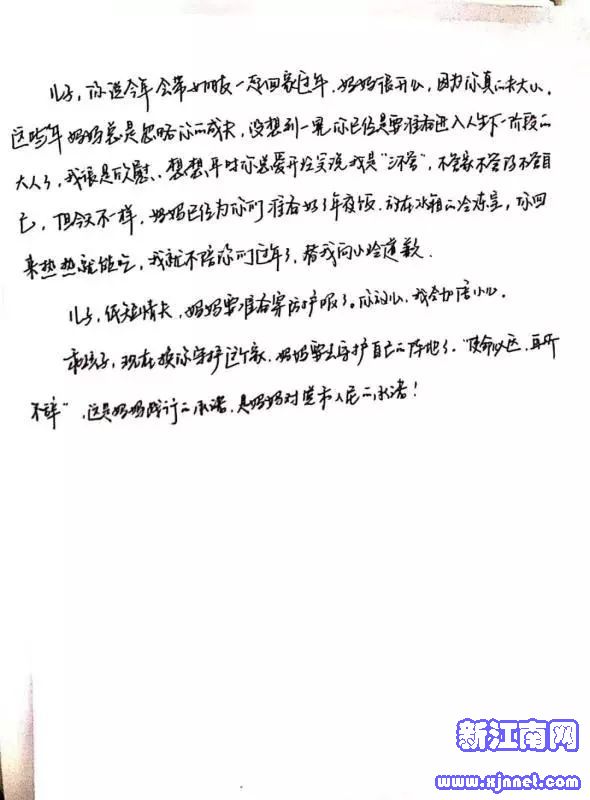 儿子,你说今年会带女朋友一起回家过年,妈妈很开心,因为你真的长大了。
这些年妈妈总是忽略你的成长,没想到一晃你已经是要准备进入人生下一阶段的
大人了,我很是欣慰。想想平时你总爱开玩笑说我是“三不管”,不管家不管你不管自
己,但今天不一样,妈妈已经为你们准备好了年夜饭,放在冰箱的冷冻室,你回
来热热就能吃,我就不陪你们过年了,替我向小玲道歉。
儿子,纸短情长,妈妈要准备穿防护服了。你放心,我会加倍小心。
乖孩子,现在换你守护这个家,妈妈要去守护自己的阵地了。“使命必达,在所
不辞”,这是妈妈践行的承诺,是妈妈对党和人民的承诺!
新江南网
www.xjnnet.com